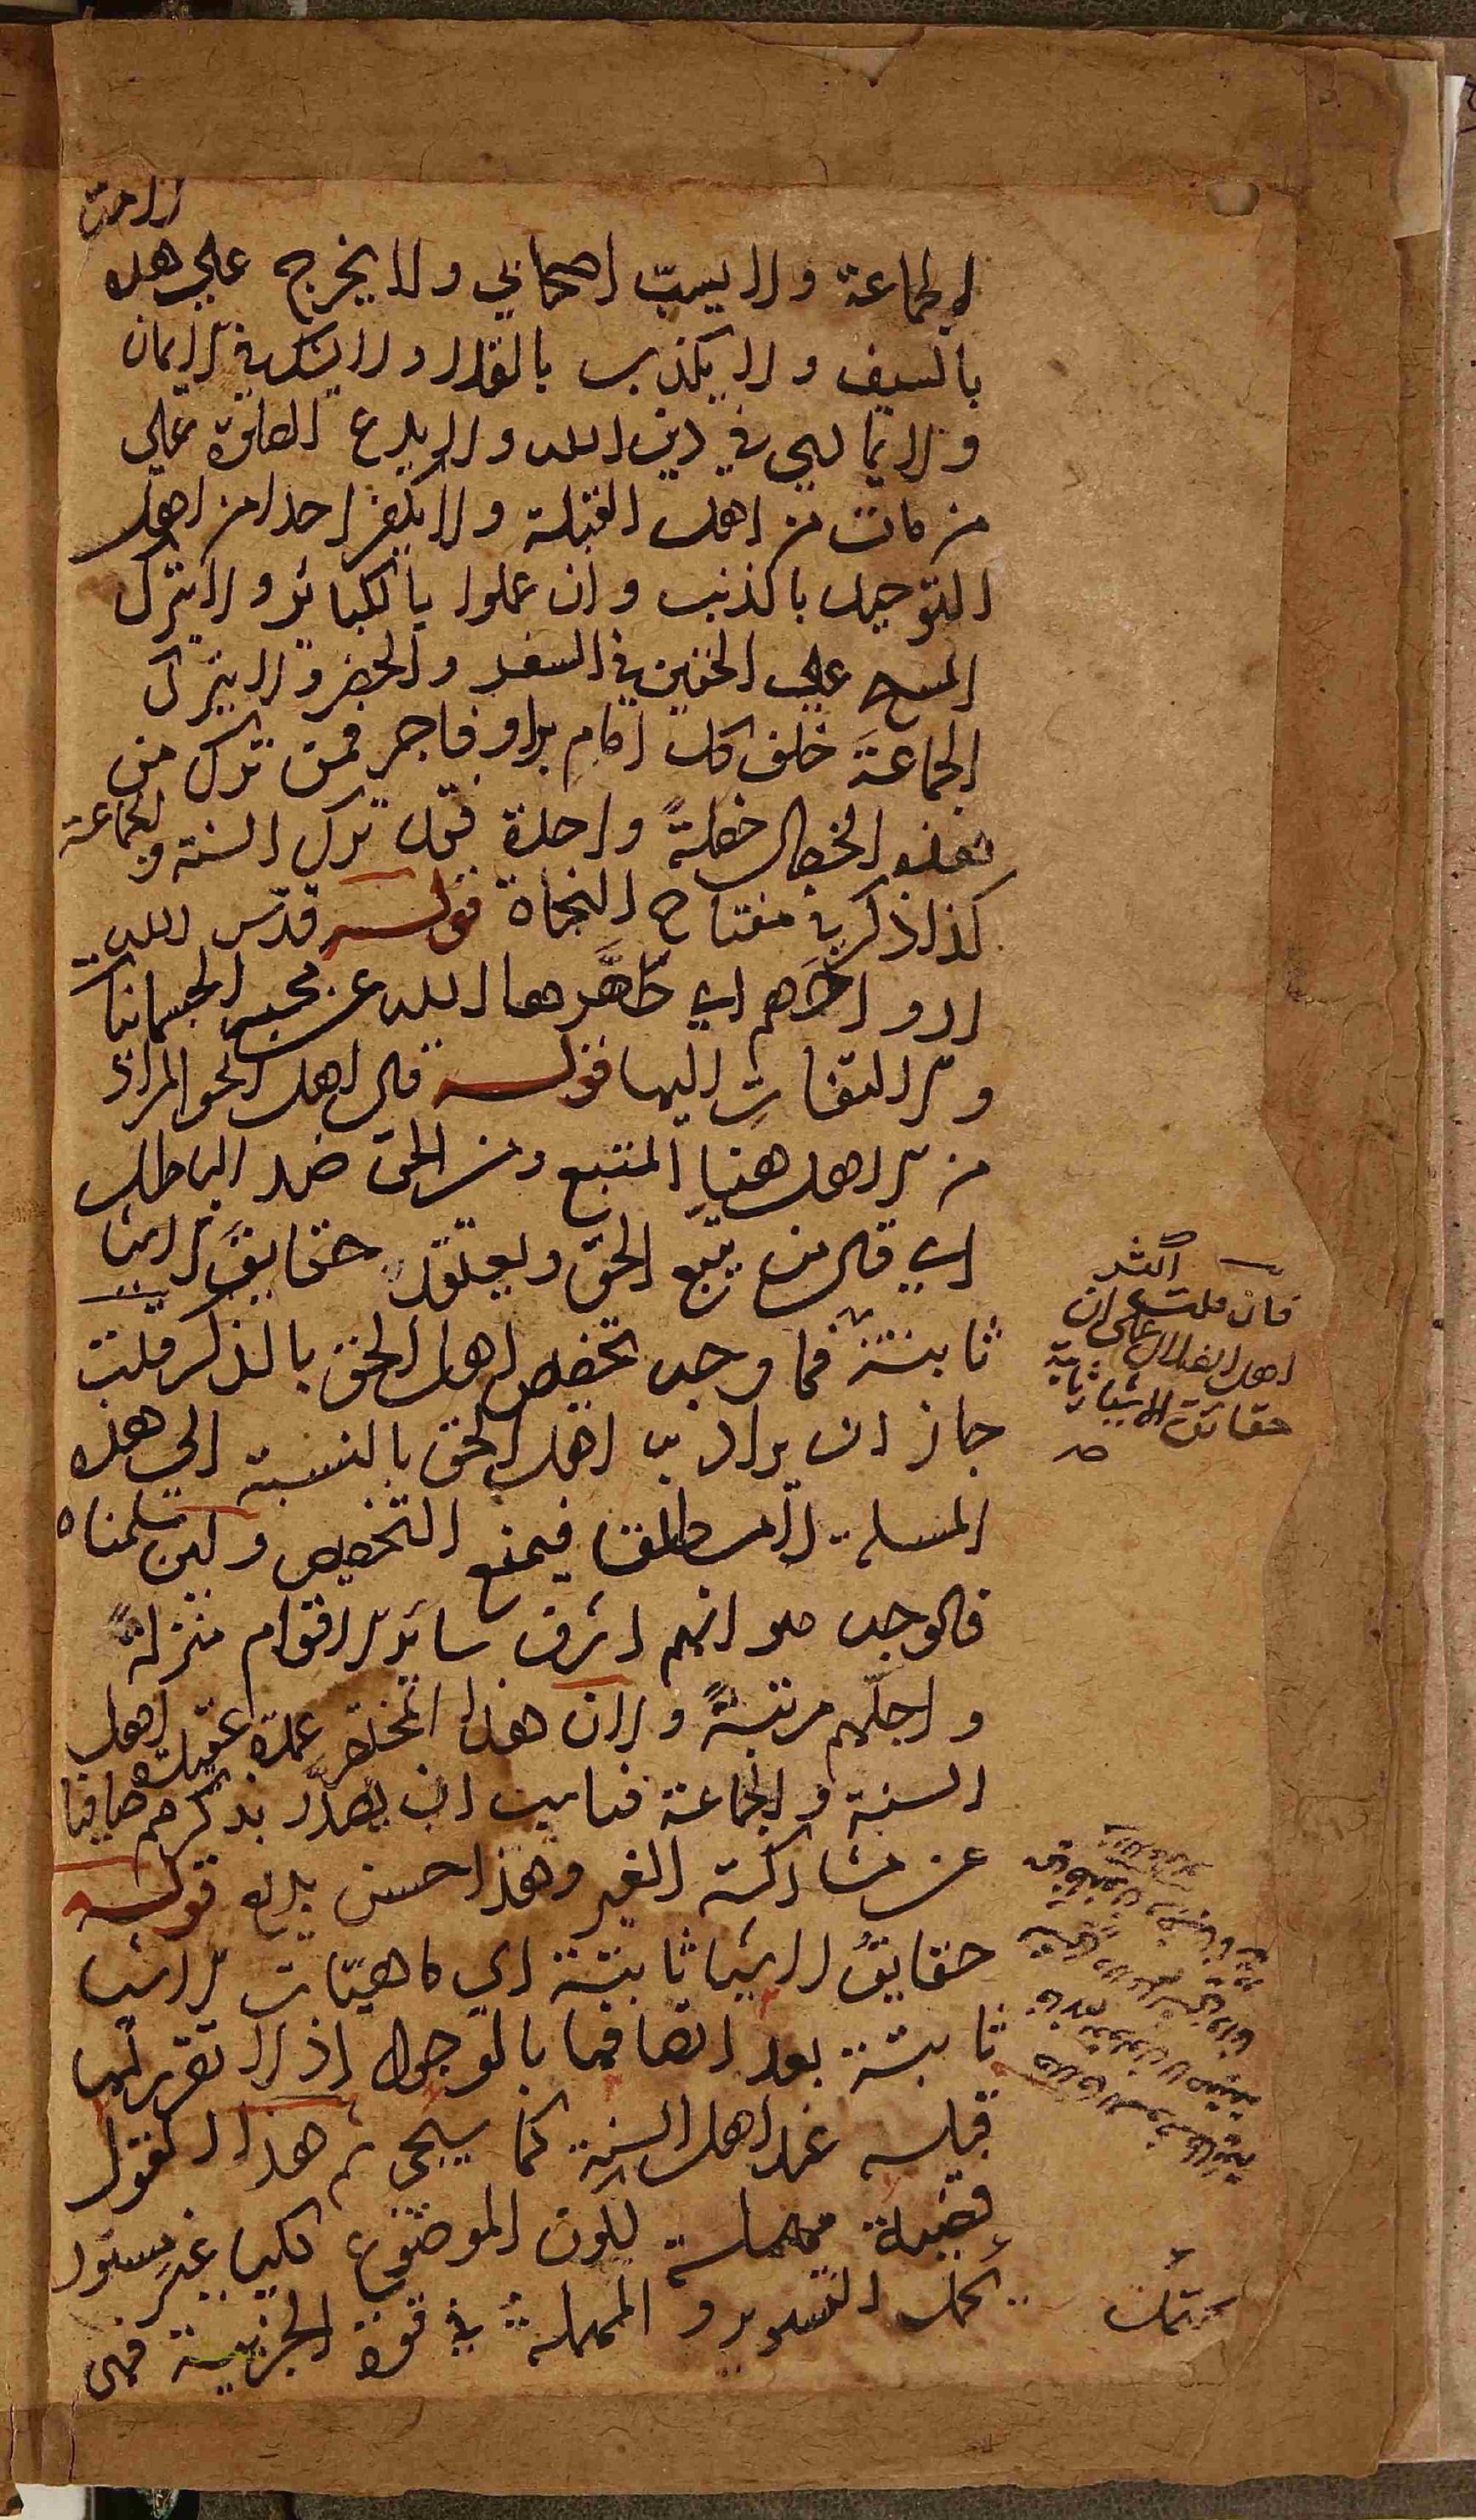 الامة
الجماعة ولا يسبّ اصحابي ولا يخرج علي هذه
بالسيف ولا يكذب بالقدر ولا يشك في الايمان
ولا يماري في دين الله ولا يدع الصلوة علي
من مات من اهل القبلة ولا يكفر احدا من اهل
التوحيد بالذنب وان عملوا بالكبائر ولا يترك
المسح علي الخفين في السفر والحضر ولا يترك
الجماعة خلف كل امام بر او فاجر فمن ترك من
هذه الخصال خصلةً واحدة فقد ترك السنة والجماعة
كذا ذكر في مفتاح النجاة قوله قدّس الله
ارواحهم اي طهّرها الله عن محبس الجسمانيات
والالتفات اليها قوله قال اهل الحق المراد
من الاهل هنا المتبع ومن الحق ضد الباطل
اي قال من يتبع الحق ويعتقد حقايق الاشياء
ثابتة فما وجه تخصيص اهل الحق بالذكر قلت
جاز ان يراد به اهل الحق بالنسبة الي هذه
المسئلة لا مطلقا فيمنع التخصيص ولئن سلمناه
فالوجه هو انهم اشرف سائر الاقوام منزلةً
واجلّهم مرتبةً ولان هذا المختصر عمدة عقيدة اهل
السنة والجماعة فناسب ان يصدّر بذكرهم صافيا
عن مشاركة الغير وهذا حسن بديع قوله
حقايقُ الاشياء ثابتة اي ماهيّات الاشياء
ثابتة بعد اتصافها بالوجود اذ لا تقرر لها
قبله عند اهل السنة كما سيجي ثم هذا القول
قضية مهملة لكون الموضوع كليا غير مسور
يحمل التسوير والمهملة في قوة الجزئية فهي
فان قلت اكثر
اهل الضلال على ان
حقائق الاشياء ثابتة
صح